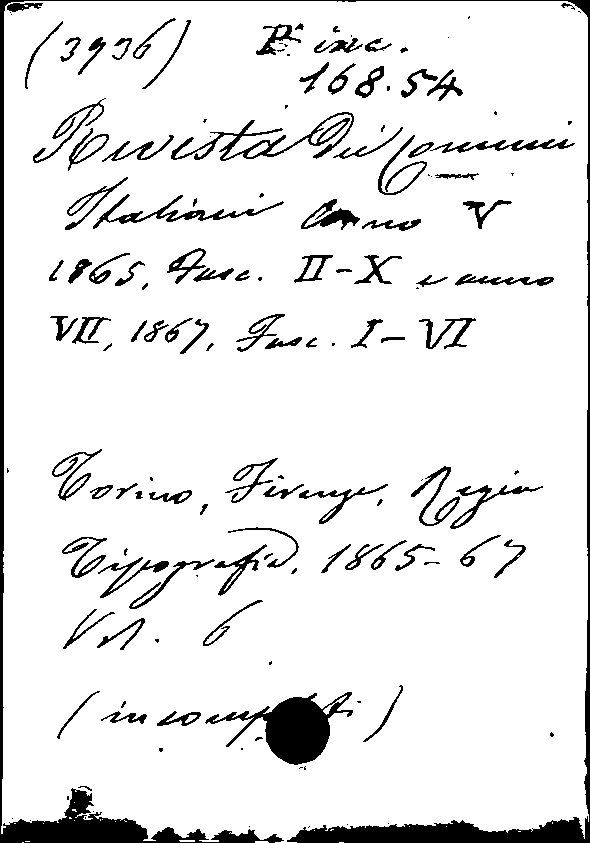 (3936) Bª inc.
168.54
Rivista Dei Comuni
Italiani Anno V
1865, Fasc. II-X e anno
VII, 1867, Fasc. I-VI
Torino, Firenze, Regia
Tipografia, 1865-67
Vol. 6
(incompleti)